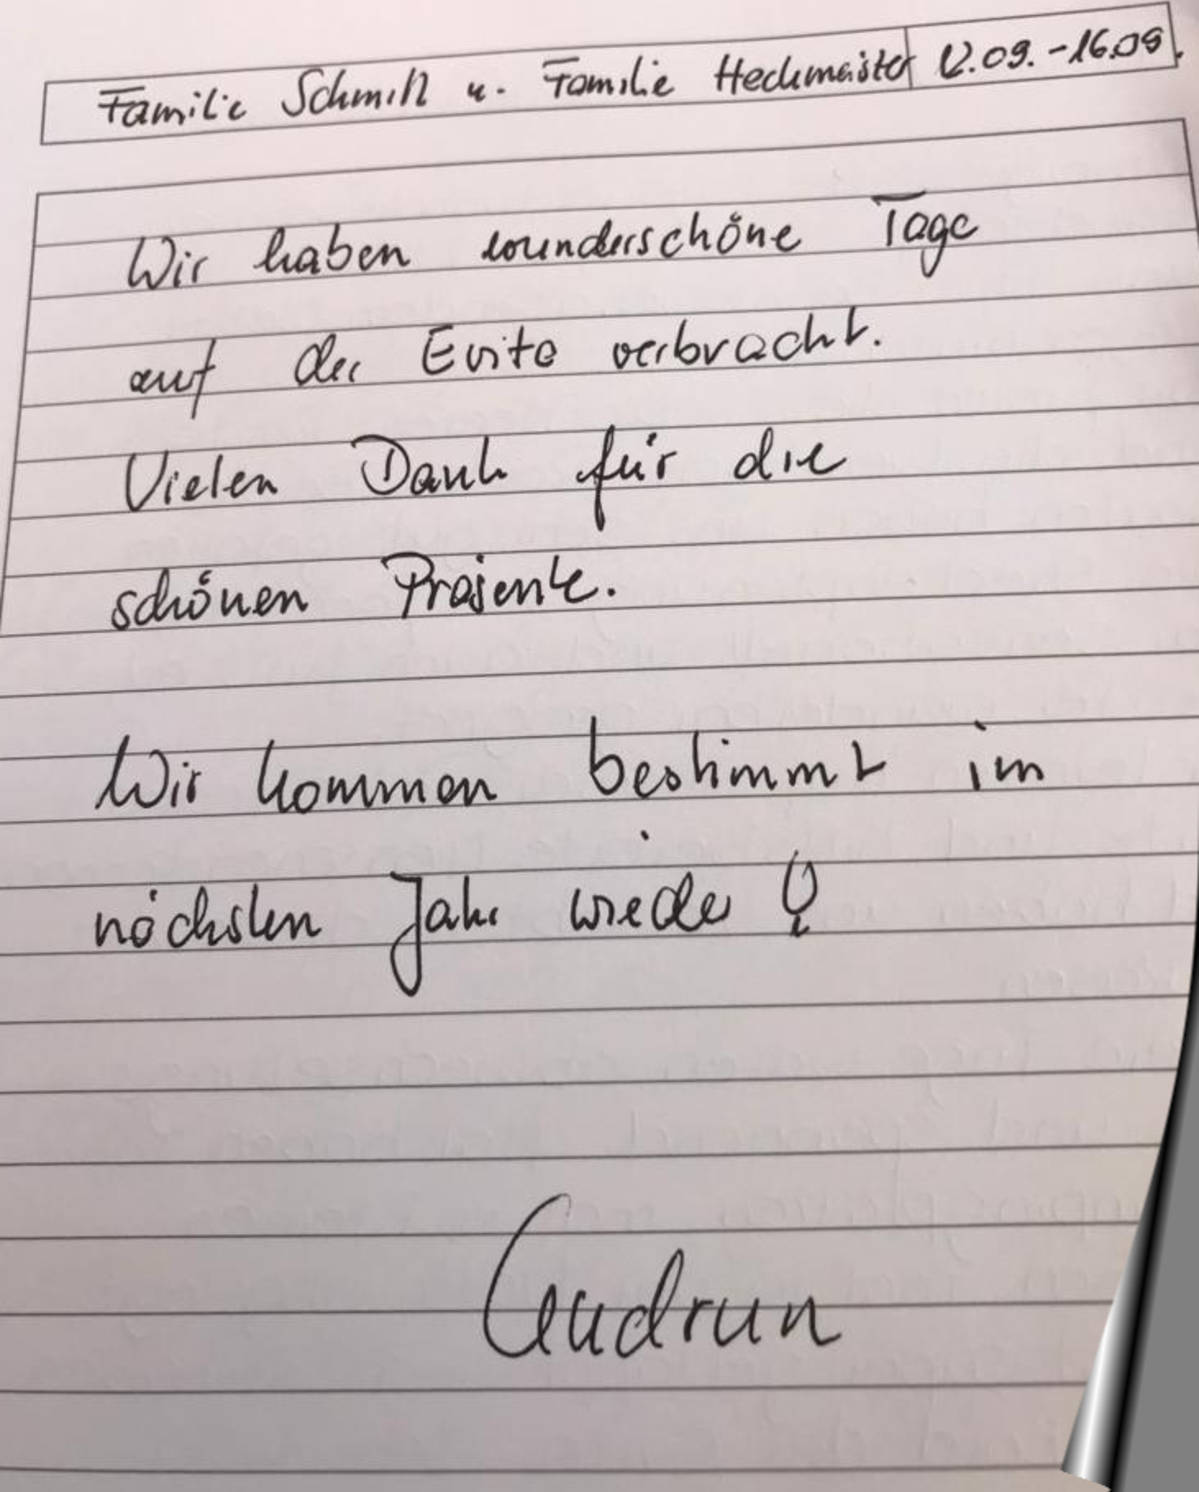 Familie Schmitt u. Familie Heckmeister 12.09.-16.09.
Wir haben wunderschöne Tage
auf der Evita verbracht.
Vielen Dank für die
schönen Präsente.
Wir kommen bestimmt im
nächsten Jahr wieder!
Gudrun